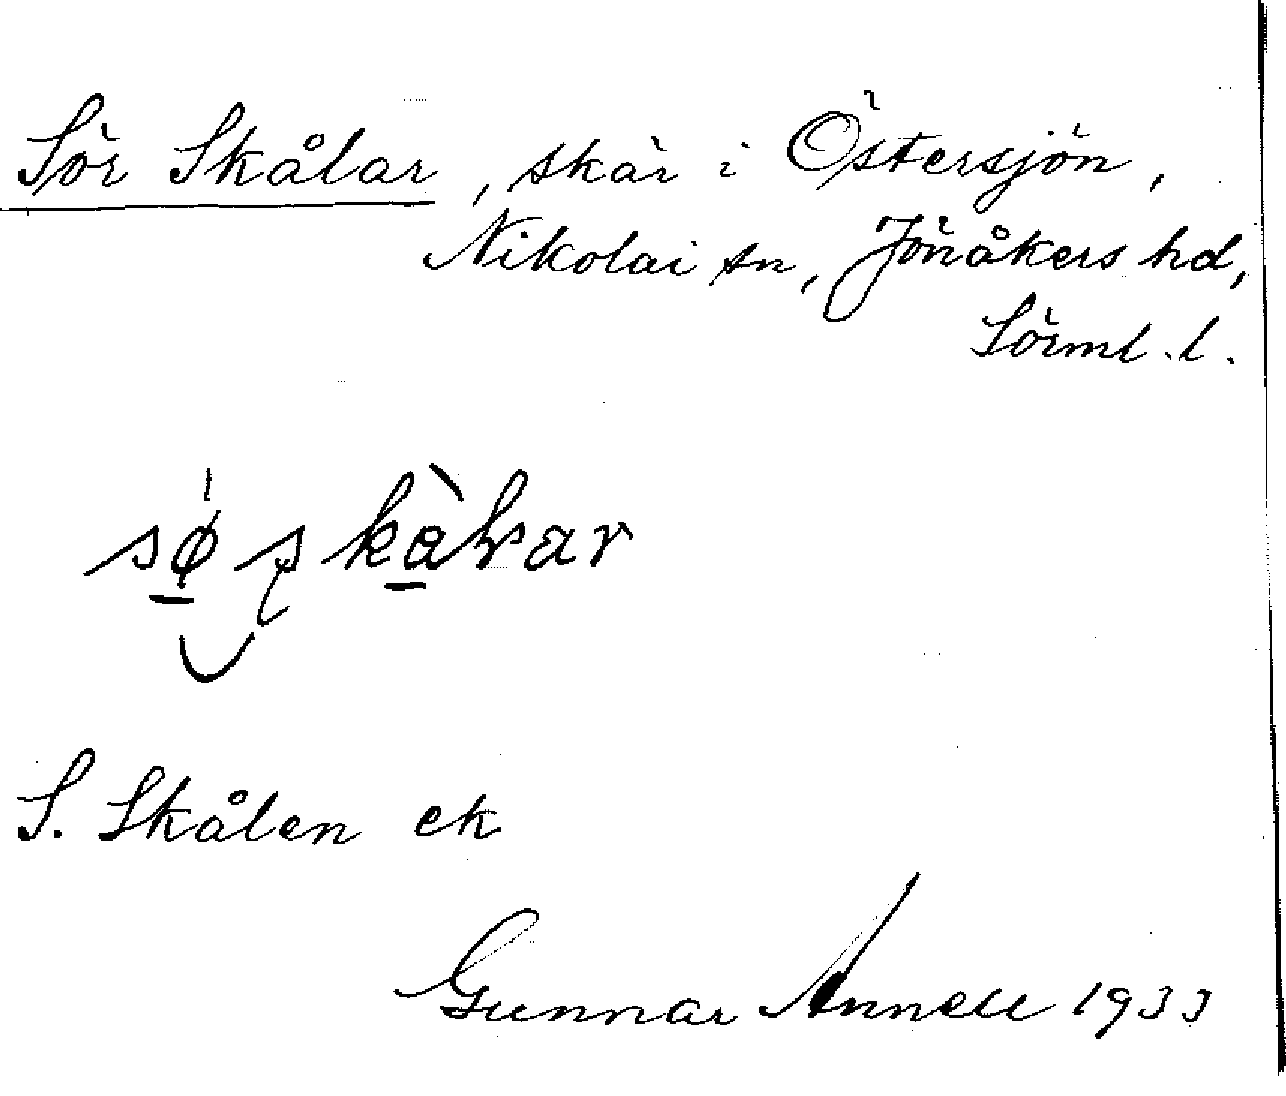 Sör Skålar, skär i Östersjön,
Nikolai sn, Jönåkers hd,
Sörml. l.
S. Skålen ek
Gunnar Annell 1933